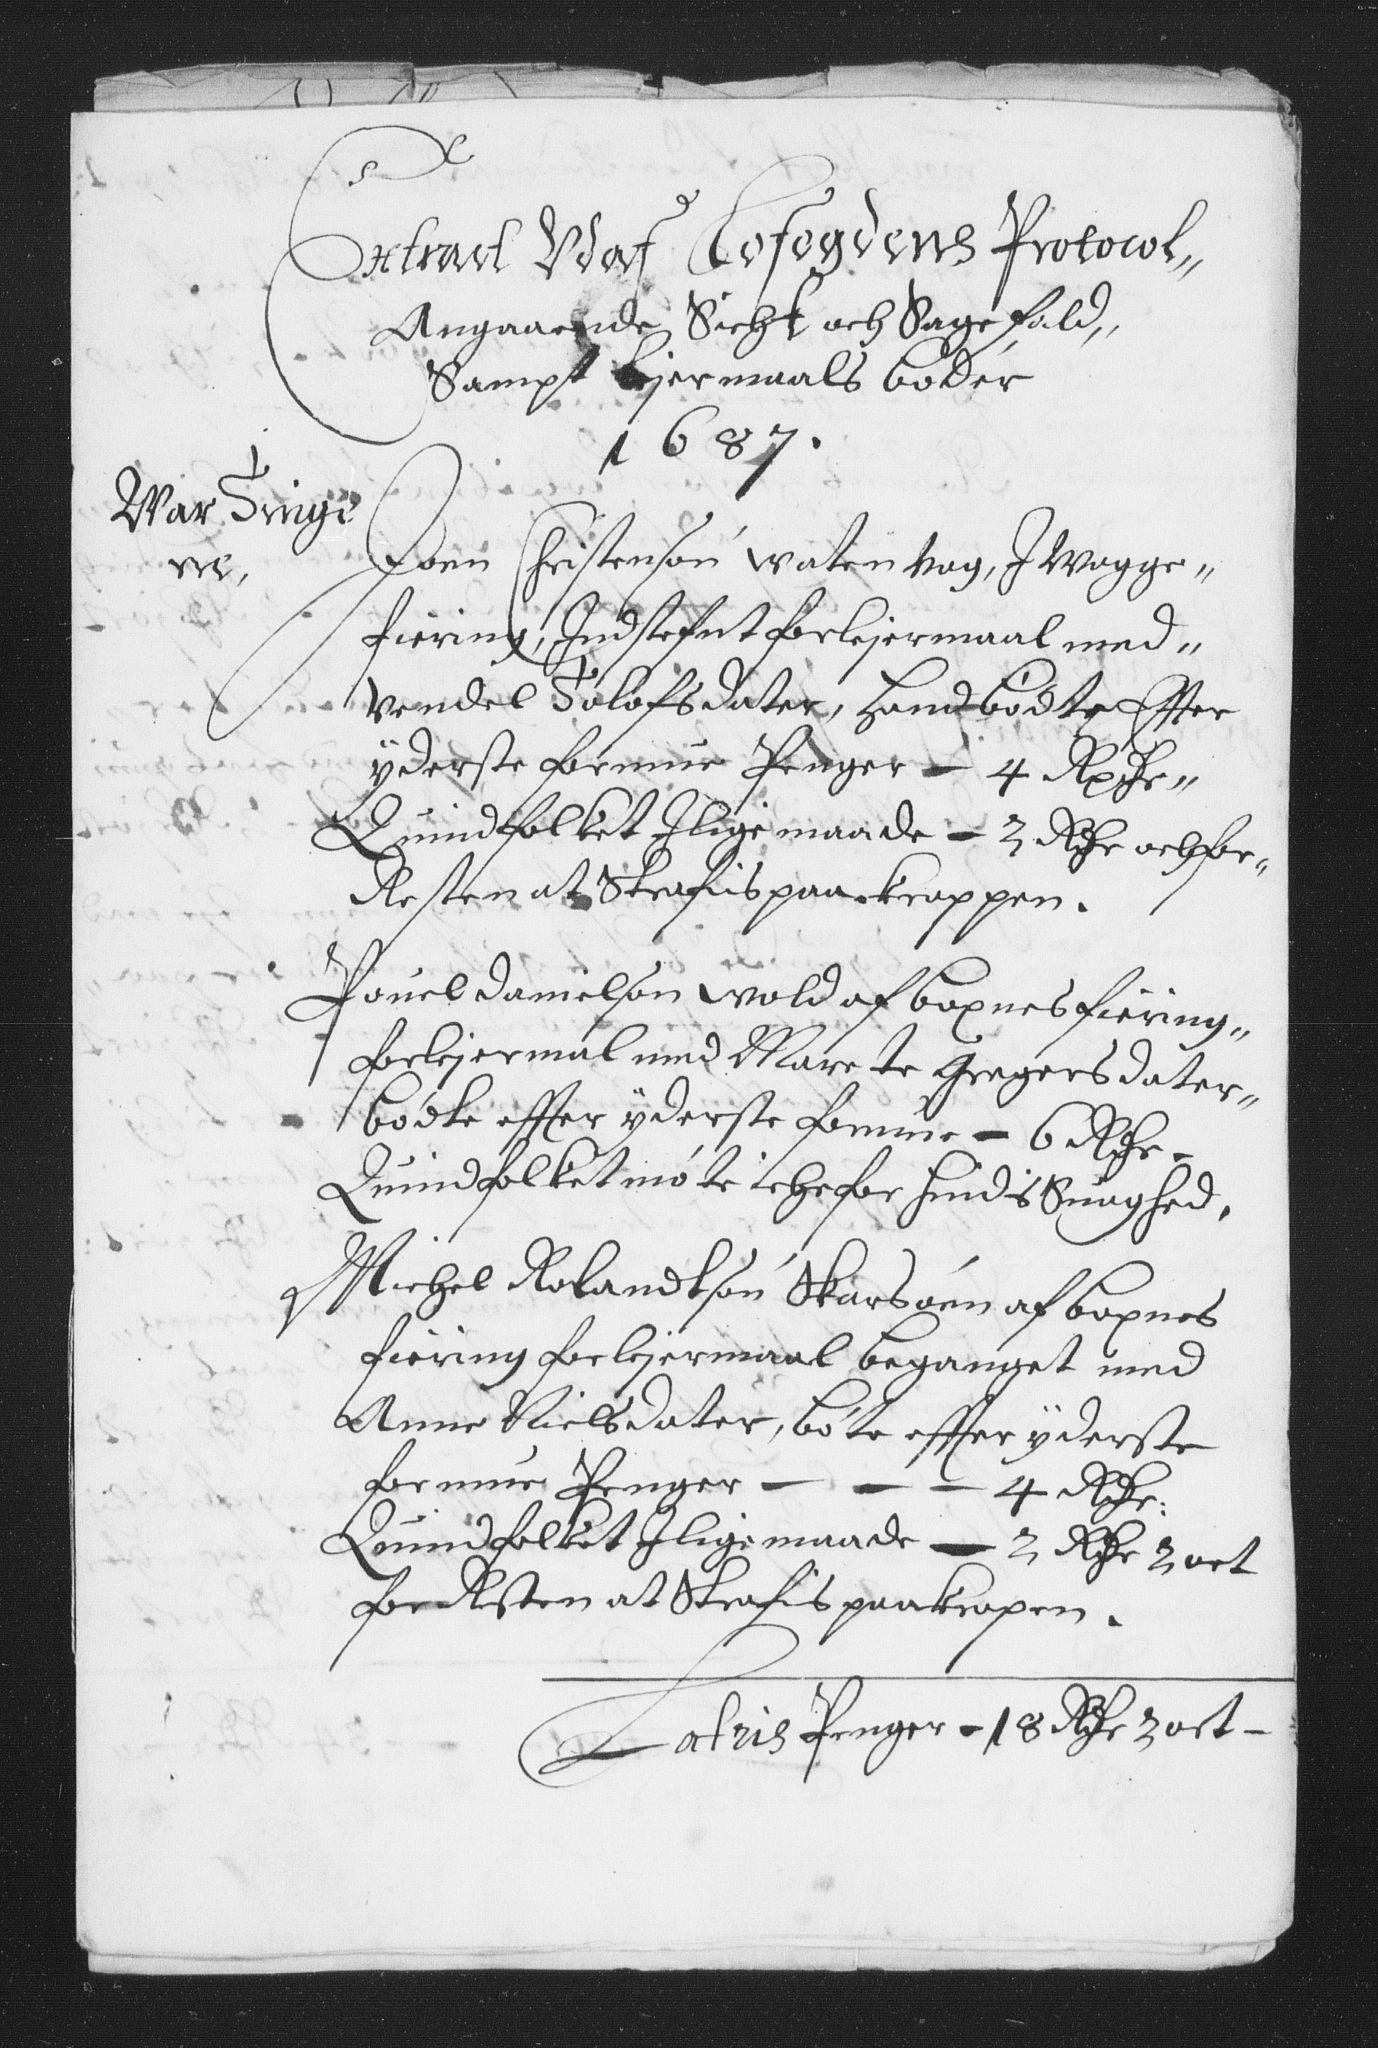 Extract Vdaf Tofogdens Protocol,,
Angaaende Sicht och Sage fald,,
Sampt Lejermaals bøder
1687.
War Tinge
ne,
Joen Christensøn Watenvag, J Wogge,,
fiering, Indstefnt for lejermaal med,,
Vendel Tolofsdater, hand bødte Effter
ÿderste formue Penger – 4 Rixdr,,
Quindfolket Jlige maade – 2 Rdr och for,,
Resten at Straffis paa kroppen.
Pouel Danielsøn Wold af boxnes fiering,,
for lejermal med Marete Gregersdater,,
bødte effter ÿderste formue – 6 Rdr –
Quindfolket møte iche for hindis Suaghed,
Michel Rolandtsøn Skarsøen af boxnes
fiering for lejermaal beganget med
Anne Nielsdater, bøte effter ÿderste
formue Penger – – – 4 Rdr:
Quindfolket Jlige maade – 2 Rdr 2 ort
for Resten at Straffis paa kropen.
Latris Penger – 18 Rdr 2 ort –